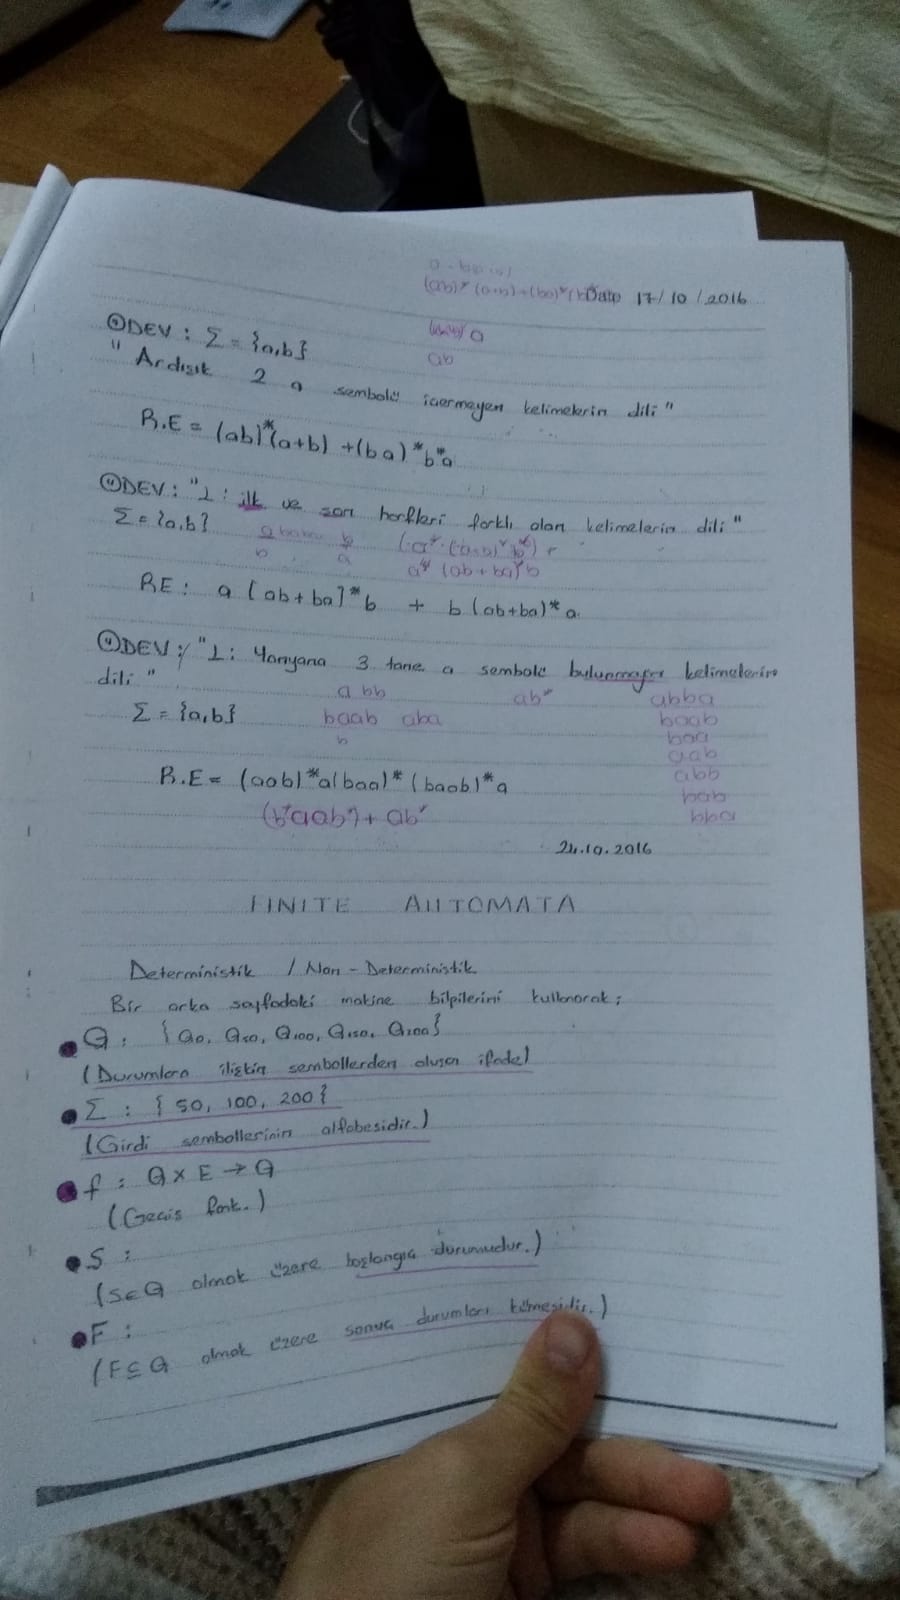 Date 17/10/2016
ÖDEV : Σ = {a,b}
a
ab
" Ardışık 2 a sembolü içermeyen kelimelerin dili "
R.E = (ab)*(a+b) + (ba)*b*a
ÖDEV : "L : ilk ve son harfleri farklı olan kelimelerin dili "
Σ = {a,b}
b a
a* (ab + ba)*b
RE : a (ab + ba)*b + b (ab+ba)* a
ÖDEV : "L : Yanyana 3 tane a sembolü bulunmayan kelimelerin
dili "
a bb ab* abba
Σ = {a,b} baab aba baab
b baa
aab
R.E = (aab)*a(baa)* (baab)*a abb
bab
(b*aab*) + ab* bba
24.10.2016
FINITE AUTOMATA
Deterministik / Non - Deterministik
Bir arka sayfadaki makine bilgilerini kullanarak ;
Q : { Q0, Q50, Q100, Q150, Q200 }
(Durumlara ilişkin sembollerden oluşan ifade)
Σ : { 50, 100, 200 }
(Girdi sembollerinin alfabesidir.)
f : Q x E → Q
(Geçiş fonk.)
S :
(S∈Q olmak üzere başlangıç durumudur.)
F :
(F⊆Q olmak üzere sonuç durumları kümesidir.)